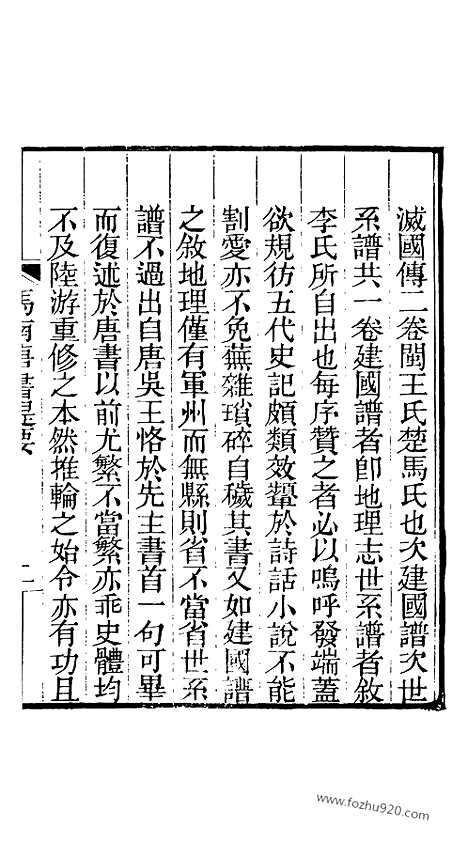 滅國傳二卷閩王氏楚馬氏也次建國譜次世
系譜共一卷建國譜者卽地理志世系譜者敘
李氏所自出也每序贊之者必以嗚呼發端蓋
欲規彷五代史記頗類效顰於詩話小說不能
割愛亦不免蕪雜瑣碎自穢其書又如建國譜
之敘地理僅有軍州而無縣則省不當省世系
譜不過出自唐吳王恪於先主書首一句可畢
而復述於唐書以前尤繁不當繁亦乖史體均
不及陸游重修之本然推輪之始令亦有功且
馬南唐書提要
二
www.fozhu920.com